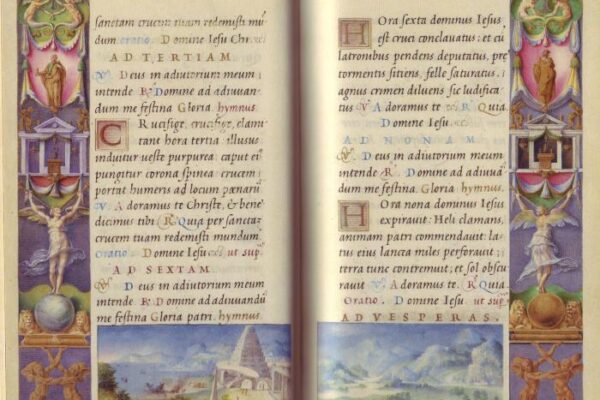 sanctam crucem tuam redemisti mu⸗
dum oratio. Domine Iesu Chr̃.
AD TERTIAM.
V. Deus in adiutorium meum
intende R. Domine ad adiuuan⸗
dum me festina Gloria hymnus.
Crucifige, crucifige, clami⸗
tant hora tertia, illusus
induitur ueste purpurea: caput ei⸗
pungitur corona spinea: crucem
portat humeris ad locum pœnarũ
V. Adoramus te Christe, & bene⸗
dicimus tibi R. Quia per sanctaz
crucem tuam redemisti mundum
oratio. Domine Iesu. ut sup.
AD SEXTAM.
V. Deus in adiutorium meum
intende R. Domine ad adiuuandũ
me festina Gloria patri. hymnus.
Hora sexta dominus Iesus
est cruci conclauatus: et cũ
latronibus pendens deputatus, prę
tormentis sitiens, felle saturatus,
agnus crimen diluens, sic ludifica⸗
tus V. Adoramus te R. Quia.
Domine Iesu
AD NONAM.
V. Deus in adiutorium meum
intende R. Domine ad adiuuan⸗
dum me festina. Gloria hymnus.
Hora nona dominus Iesus
expirauit: Heli clamans,
animam patri commendauit: la⸗
tus eius lancea miles perforauit:
terra tunc contremuit, et sol obscu⸗
rauit V. Adoramus te. R. Quia.
Oratio. Domine Iesu ut sup.
AD VESPERAS.